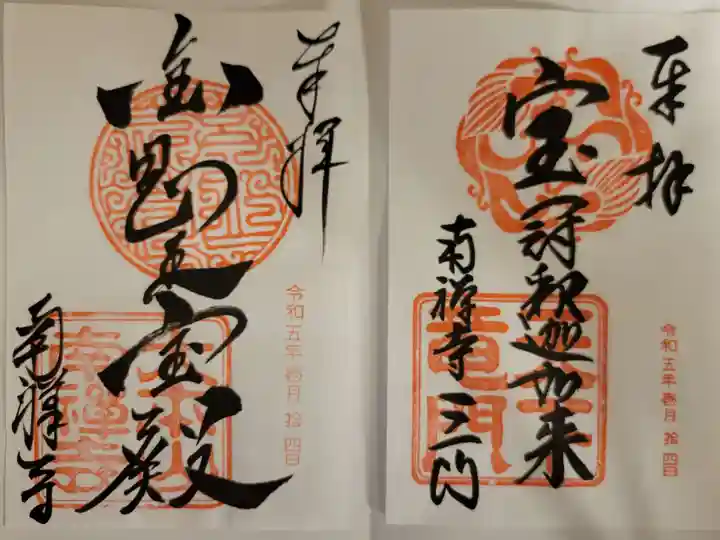 奉拝
金剛王宝殿
南禅寺
令和五年壱月拾四日
奉拝
宝冠釈迦如来
南禅寺三門
令和五年壱月拾四日